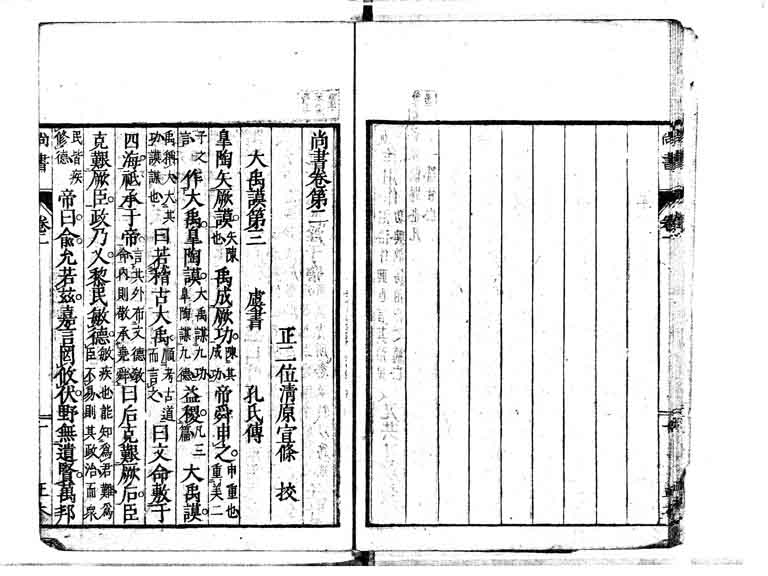 尚書卷第二
正二位清原宣條 挍
大禹謨第三 虞書 孔氏傳
皐陶矢厥謨矢陳也禹成厥功陳其成功帝舜申之申重也重美二
子之言作大禹皐陶謨大禹謀九功皐陶謀九德益稷凡三篇大禹謨
禹稱大大其功謨謀也曰若稽古大禹順考古道而言之曰文命敷于
四海祗承于帝言其外布文德教命內則敬承堯舜曰后克艱厥后臣
克艱厥臣政乃乂黎民敏德敏疾也能知爲君難爲臣不易則其政治而衆
民皆疾修德帝曰兪允若茲嘉言罔攸伏野無遺賢萬邦
尚書 卷二 一
尚書 卷二